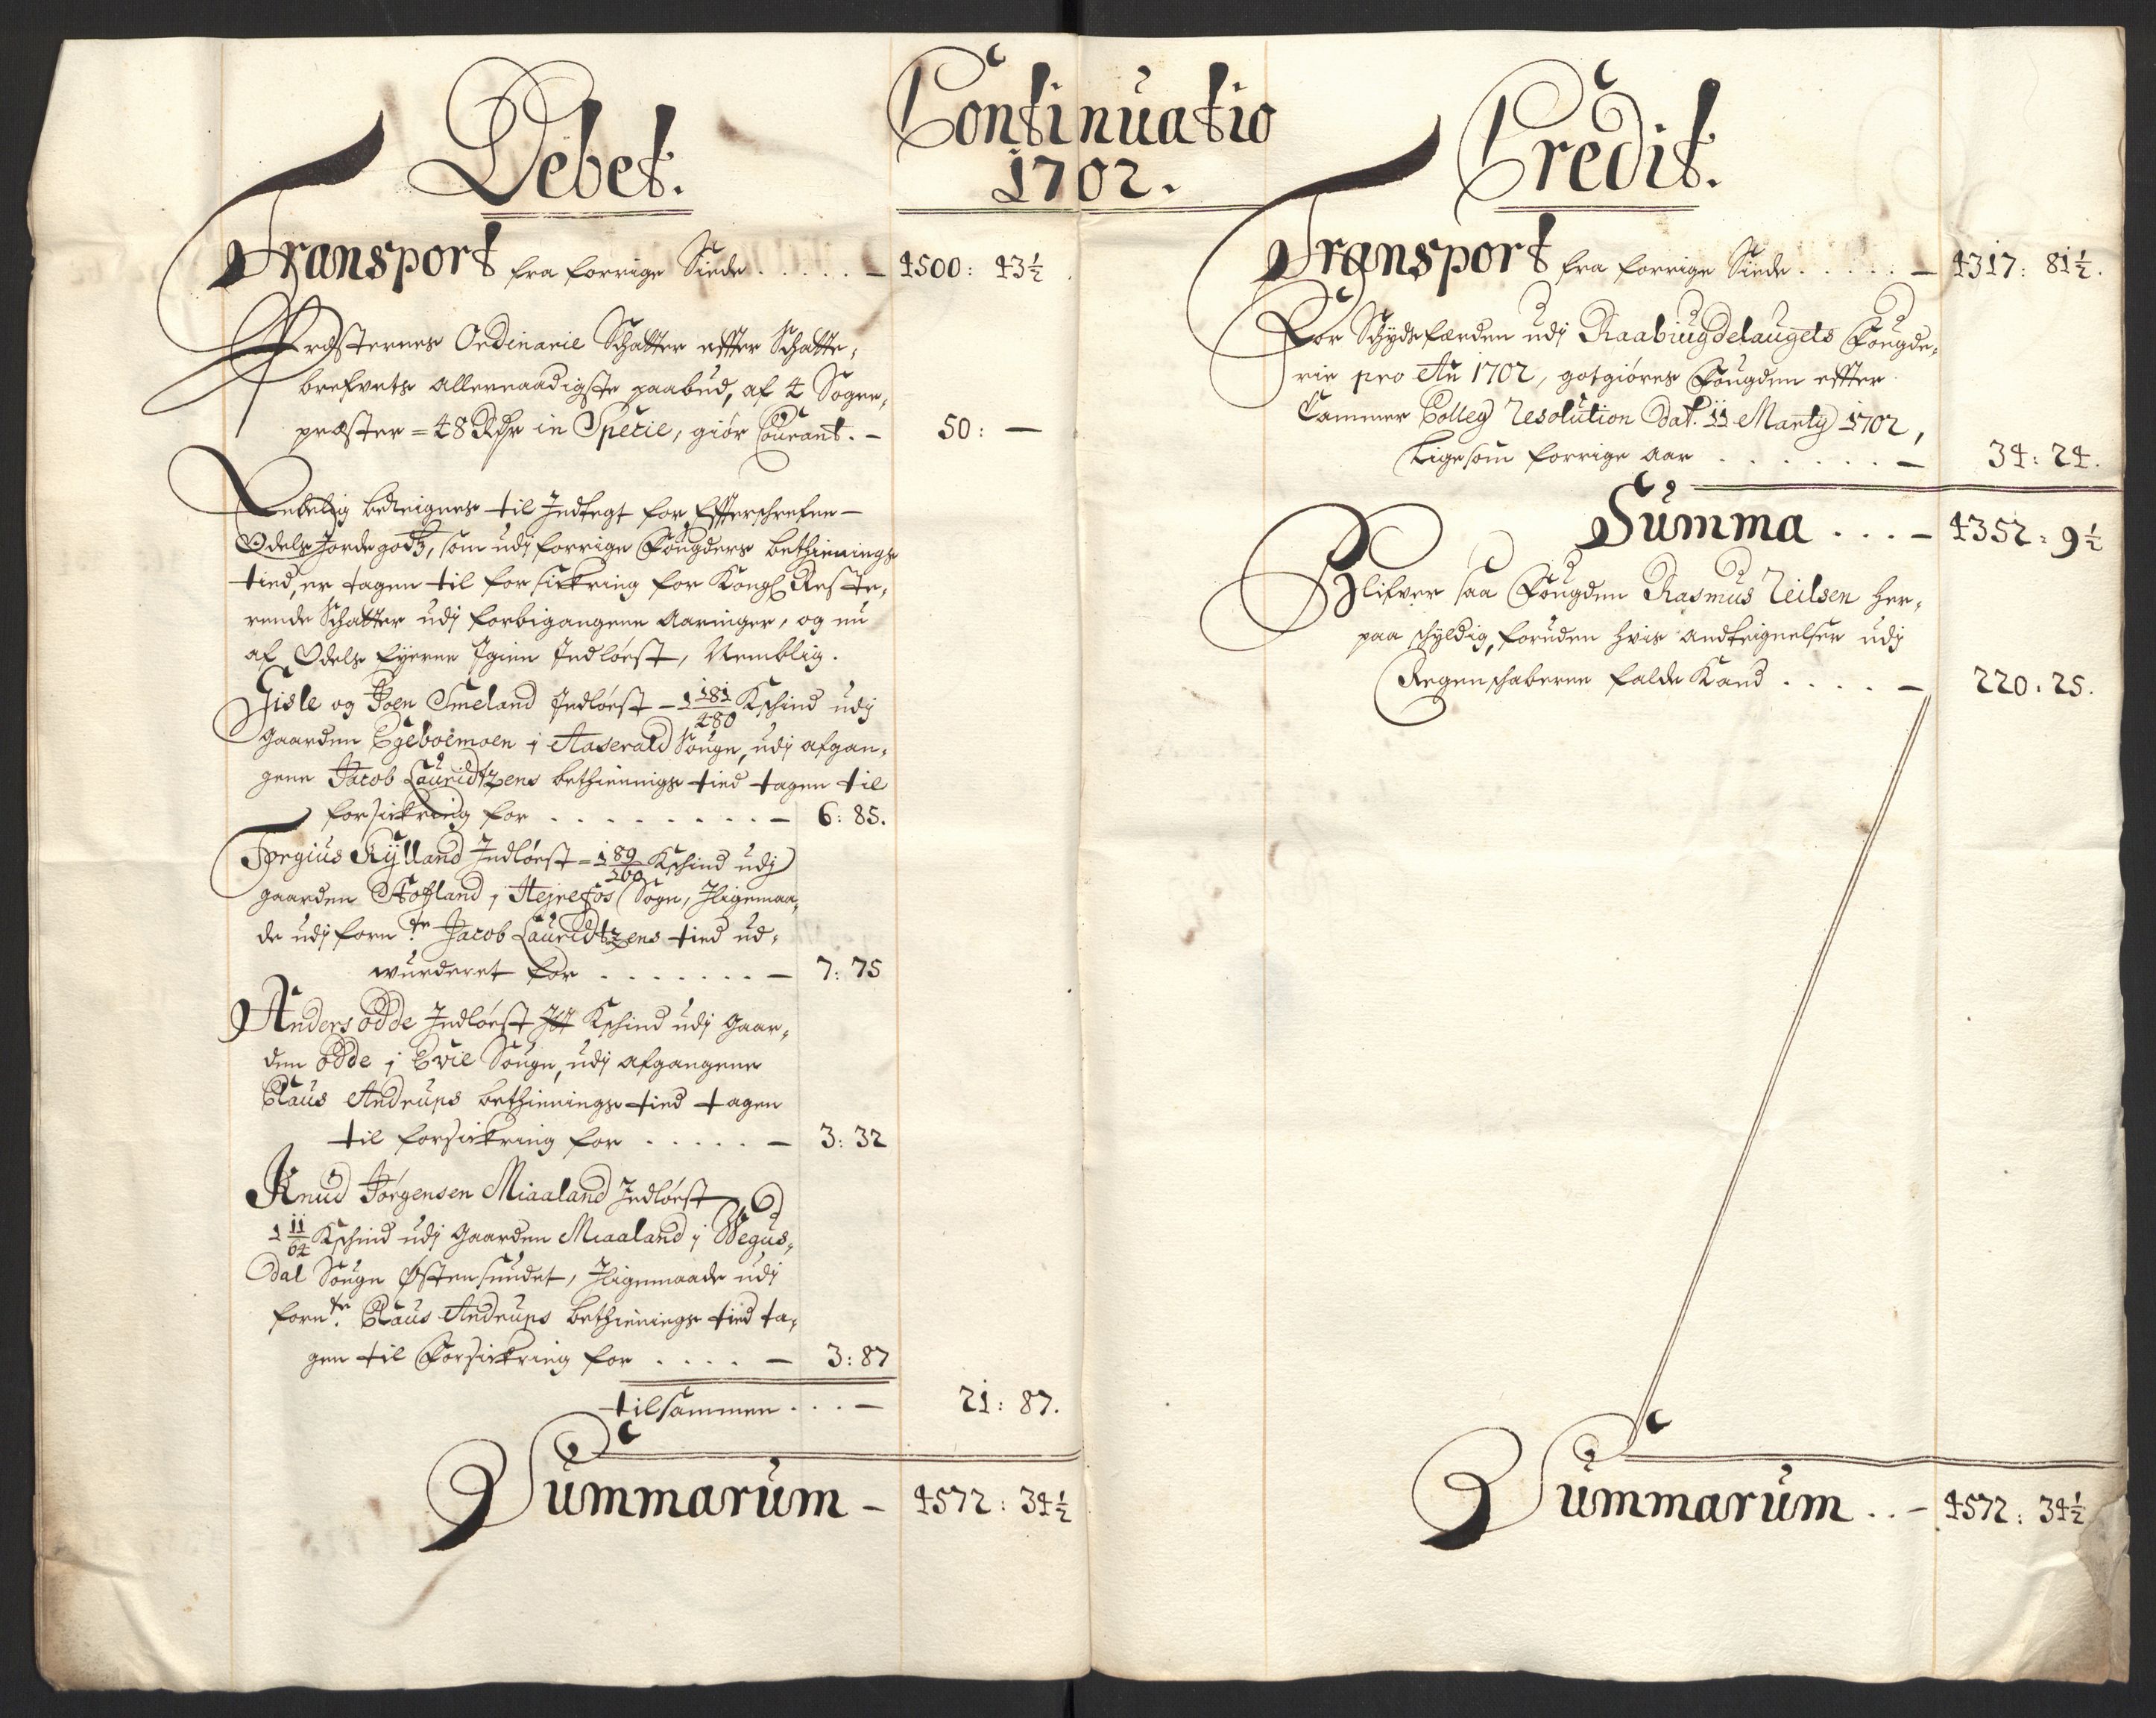 Continuatio
1702.
Debet.
Transport fra forrige Siede . . . . . — 4500: 43½
Præsternes Ordinarie Schatter effter Schatte-
brefvets allernaadigste paabud, af 4 Sogne-
præster = 48 Rdr in Specie, giör Courant. — 50: —
Endelig beteignes til Indtegt for Effterschrefne
Odels Jordegodtz, som udj forrige Fougders bethienings
tied, er tagen til forsickring for Kongl Reste-
rende Schatter udj forbigangene Aaringer, og nu
af Odels Eyerne Igien Indlöest, Nemblig.
Gisle og Joen Smeland Indlöest — 1 181/480 Kschind udj
gaarden Egeboemoen i Aaserald Sougn, udj afgan-
gene Jacob Lauridtzens bethienings tied tagen til
forsickring for . . . . . . . . . — 6: 85.
Torgius Kylland Indlöest = 1 89/360 Kschind udj
gaarden Hofland i Hejrefos Sogn, Jligemaa-
de udj fornte Jacob Lauridtzens tied ud-
wurderet for . . . . . . . — 7: 75
Anders odde Indlöest Kschind udj Gaar-
den odde i Evie Sougn, udj afgangene
Claus Andrups bethienings tied tagen
til forsickring for . . . . . — 3: 32
Knud Jörgensen Miaaland Indlöest
1 11/64 Kschind udj Gaarden Miaaland i Wegus-
dal Sougn Østensundet, Jligemaade udj
fornte Claus Andrups bethienings tied ta-
gen til Forsickring for . . . . — 3: 87
tilsammen . . . — 21: 87.
Summarum — 4572: 34½
Credit.
Transport fra forrige Siede . . . . . — 4317: 81½.
For Schydsfærden udj Raabiugdelaugets Fougde-
rie pro Ao 1702, gotgiöres Fougden effter
Cammer Colleg Resolution Dat. 11 Marty 1702,
Ligesom forrige Aar . . . . . . . — 34: 24.
Summa . . . — 4352: 9½
Blifver saa Fougden Rasmus Teilsen her-
paa schyldig, foruden hvis Andteignelser udj
Regenschaberne falde Kand . . . . — 220: 25.
Summarum . . — 4572: 34½